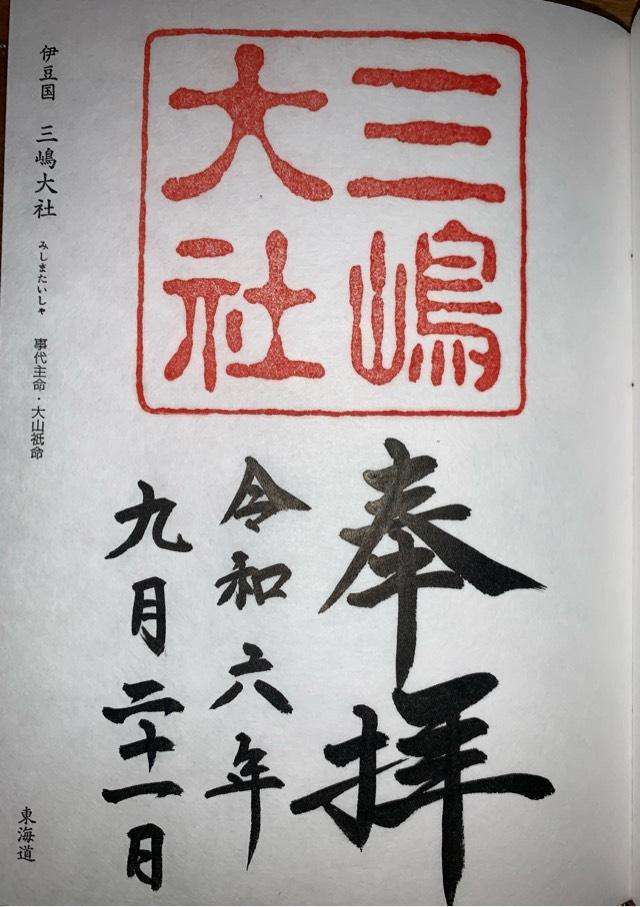 三嶋
大社
奉拝
令和六年
九月二十一日
伊豆国 三嶋大社 みしまたいしゃ 事代主命・大山祇命
東海道